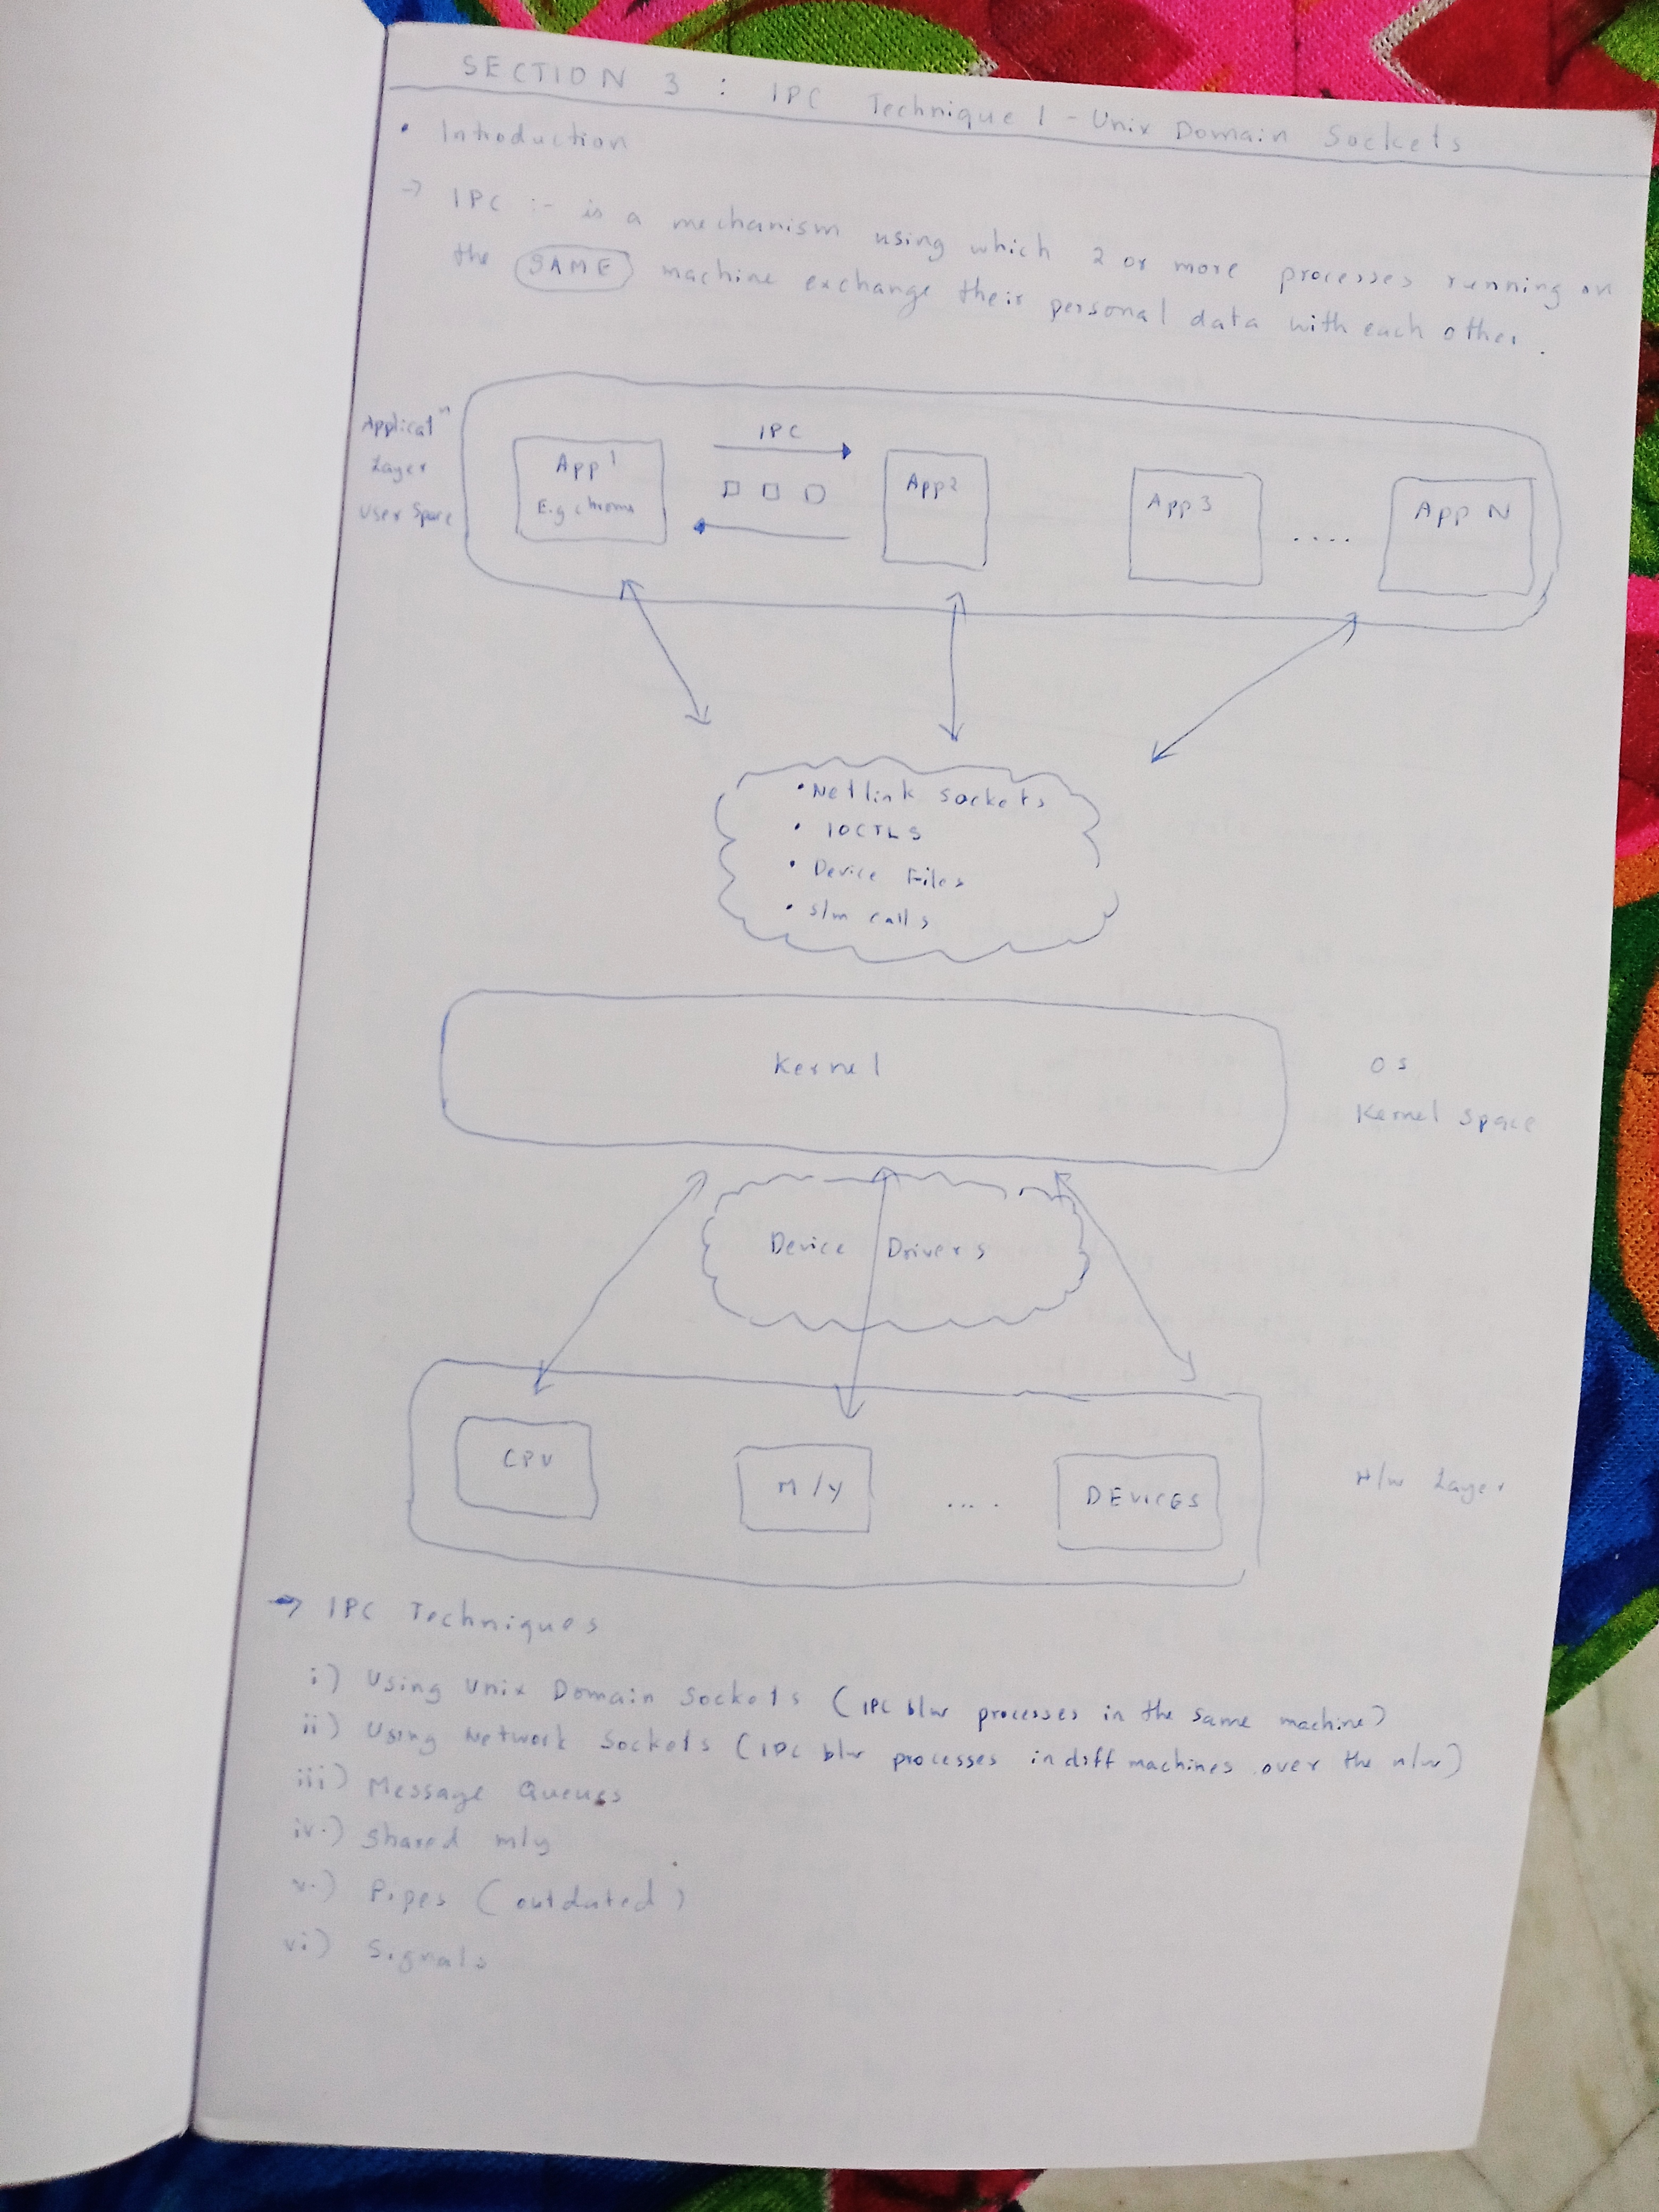 SECTION 3 : IPC Technique 1 - Unix Domain Sockets
• Introduction
→ IPC :- is a mechanism using which 2 or more processes running on
the SAME machine exchange their personal data with each other.
Applicatⁿ
Layer
User Space
App 1
E.g chrome
IPC
App 2
App 3
....
App N
• Netlink Sockets
• IOCTLS
• Device Files
• s/m calls
Kernel
OS
Kernel Space
Device Drivers
CPU
M/Y
....
DEVICES
H/w Layer
→ IPC Techniques
i) Using Unix Domain Sockets (IPC b/w processes in the same machine)
ii) Using Network Sockets (IPC b/w processes in diff machines over the n/w)
iii) Message Queues
iv.) Shared m/y
v.) Pipes (outdated)
vi) Signals